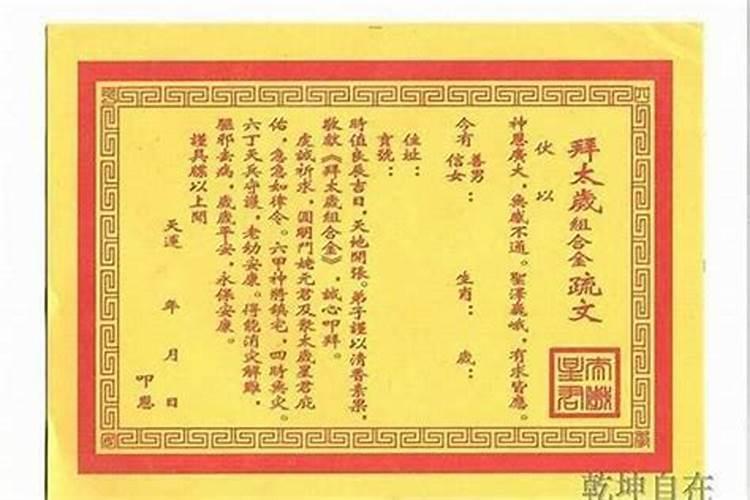 拜太歲組合金疏文
伏以
神恩廣大，無感不通。聖澤巍峨，有求皆應。
今有 善男 信女 ： 生肖： 歲：
住址：
寶號：
時值良辰吉日，天地開張。弟子謹以清香素果，
敬獻《拜太歲組合金》，誠心叩拜。
虔誠祈求，圓明斗姥元君及眾太歲星君庇
佑，急急如律令。六甲神將鎮宅，四時無災。
六丁天兵守護，老幼安康。得能消災解難，
驅邪去病，歲歲平安，永保安康。
謹具牒以上聞
天運 年 月 日 叩恩
太歲星君
乾坤自在